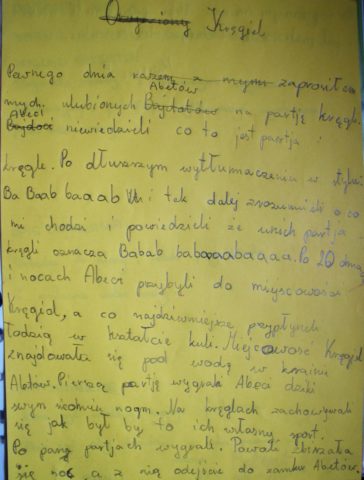 Kręgiel
Pewnego dnia razem z mymi zaprosiłem
Abetów
mych ulubionych na partję kręgli.
Abeci
niewiedzieli co to jest partja
kręgle. Po dłuszszym wytłumaczeniu w stylu
Ba Baab baaab i tak dalej zrozumieli o co
mi chodzi i powiedzieli że unich partja
kręgli oznacza Babab babaaabaaaa. Po 20 dniach
i nocach Abeci przybyli do miejscowości
Kręgiel, a co najdziwniejsze przypłyneli
łodzią w krztałcie kuli. Miejscowość Kręgiel
znajdowała się pod wodą w krainie
Abetów. Pierszą partję wygrali Abeci dzięki
swym nogm. Na kręglach zachowywali
się jak był by to ich własny sport.
Po paru partjach wygrali. Powoli zbliżała
się noc a z nią odejście do zamku Abetów.